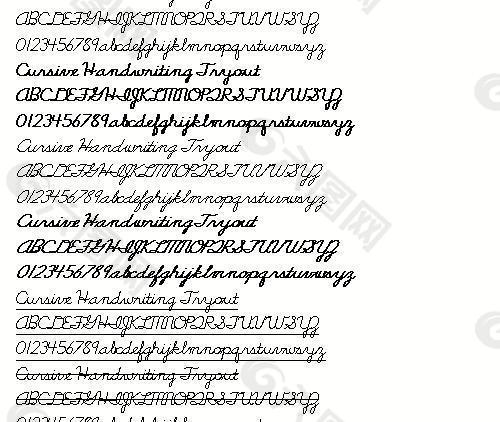 ABCDEFGHIJKLMNOPQRSTUVWXYZ
0123456789abcdefghijklmnopqrstuvwxyz
Cursive Handwriting Tryout
ABCDEFGHIJKLMNOPQRSTUVWXYZ
0123456789abcdefghijklmnopqrstuvwxyz
Cursive Handwriting Tryout
ABCDEFGHIJKLMNOPQRSTUVWXYZ
0123456789abcdefghijklmnopqrstuvwxyz
Cursive Handwriting Tryout
ABCDEFGHIJKLMNOPQRSTUVWXYZ
0123456789abcdefghijklmnopqrstuvwxyz
Cursive Handwriting Tryout
ABCDEFGHIJKLMNOPQRSTUVWXYZ
0123456789abcdefghijklmnopqrstuvwxyz
Cursive Handwriting Tryout
ABCDEFGHIJKLMNOPQRSTUVWXYZ
0123456789abcdefghijklmnopqrstuvwxyz